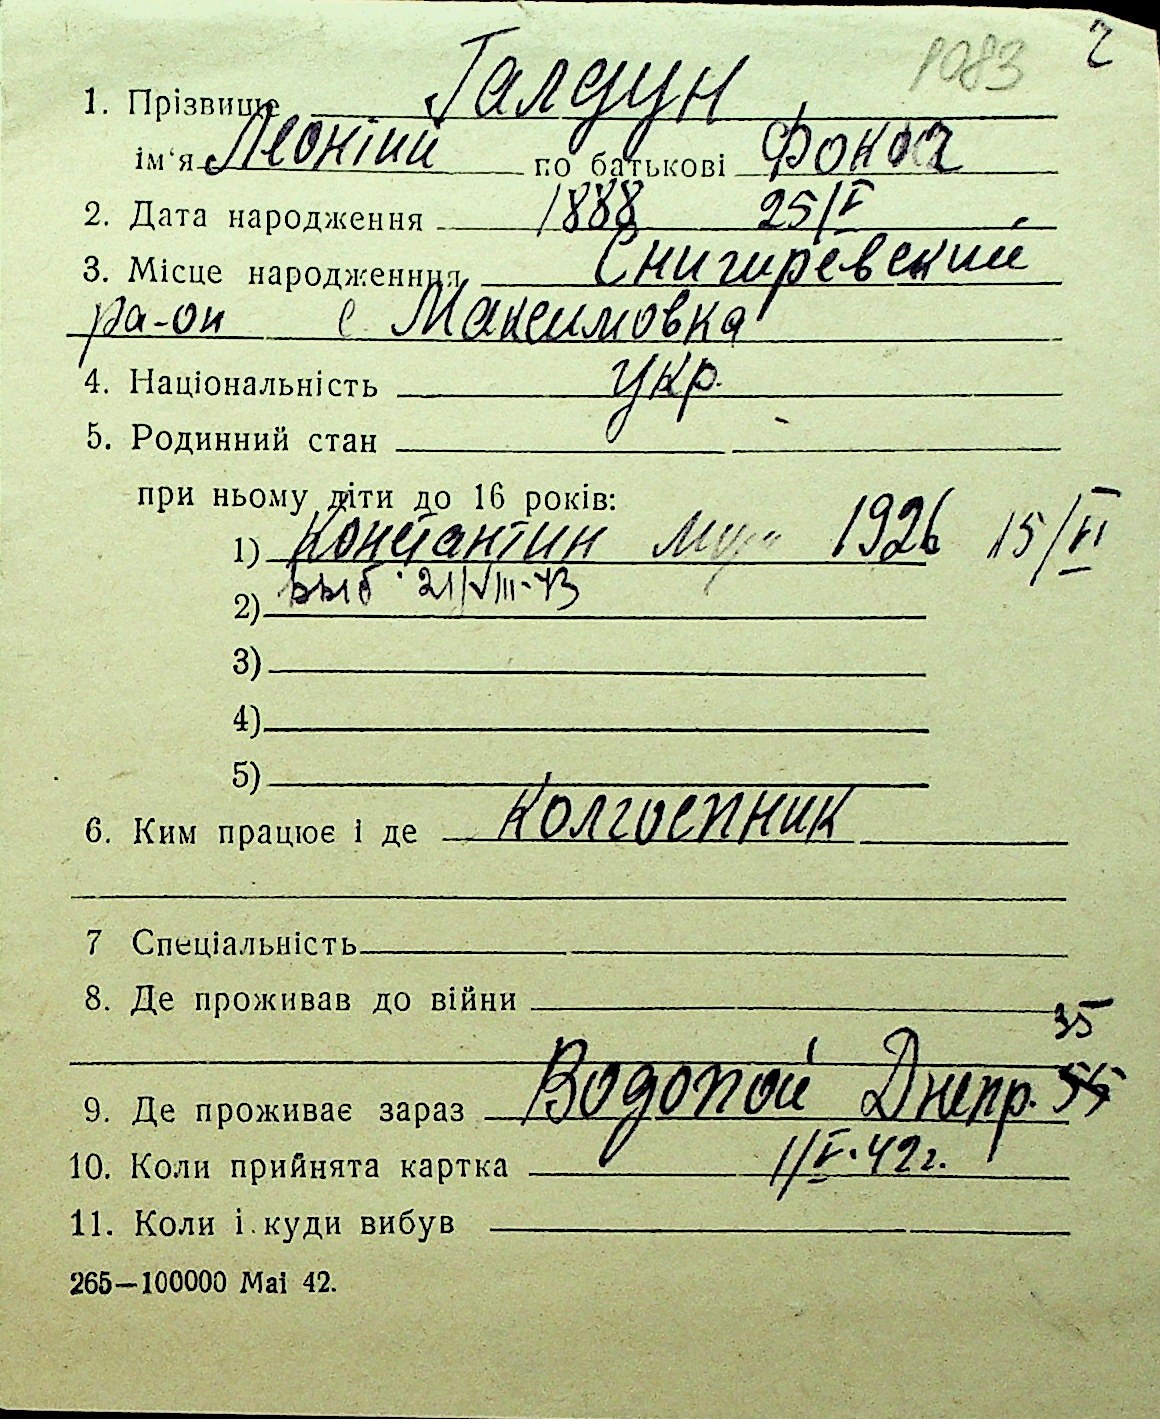 1083 2
1. Прізвище Галдун
ім'я Леонтий по батькові Фокич
2. Дата народження 1888 25/V
3. Місце народженння Снигиревский
ра-он с Максимовка
4. Національність укр.
5. Родинний стан -
при ньому діти до 16 років:
1) Константин 1926 15/VI
2) выб. 21/VIII-43
3)
4)
5)
6. Ким працює і де Колгоспник
7 Спеціальність
8. Де проживав до війни
35
9. Де проживає зараз Водопой Днепр. 55
10. Коли прийнята картка 1/V.42г.
11. Коли і куди вибув
265—100000 Mai 42.